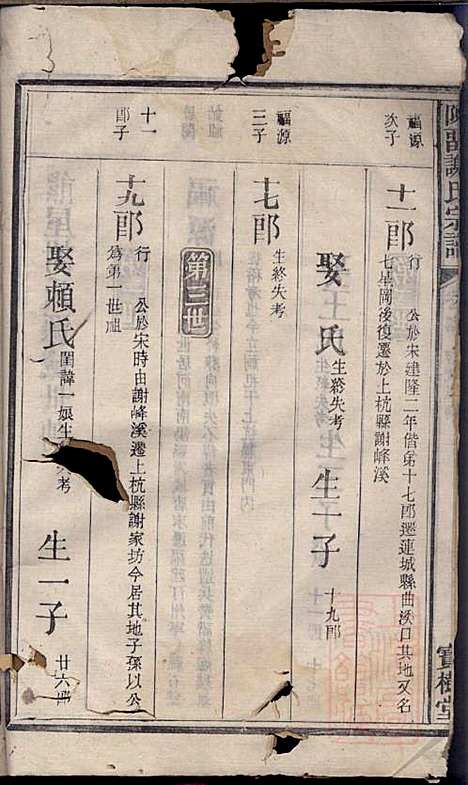 陳留謝氏宗譜
寶樹堂
福源
次子
十一郎
行
公於宋建隆二年偕弟十七郎遷連城縣曲溪口其地又名
七星岡後復遷於上杭縣謝峰溪
娶 氏
生終失考
生一子
十九郎
福源
三子
十七郎
生終失考
第三世
十一
郎子
十九郎
行
公於宋時由謝峰溪遷上杭縣謝家坊今居其地子孫以公
為第一世祖
娶賴氏
閨諱一娘生 失考
生一子
廿六郎